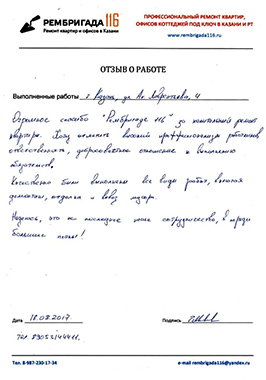 РЕМБРИГАДА 116
Ремонт квартир и офисов в Казани
ПРОФЕССИОНАЛЬНЫЙ РЕМОНТ КВАРТИР,
ОФИСОВ КОТТЕДЖЕЙ ПОД КЛЮЧ В КАЗАНИ И РТ
www.rembrigada116.ru
ОТЗЫВ О РАБОТЕ
Выполненные работы г. Казань, ул. 4
Огромное спасибо "Рембригаде 116" за ремонт
квартиры. Хочу отметить высокий профессионализм работников,
ответственность, добросовестное отношение к выполнению
Качественно были выполнены все виды работ, включая
демонтаж, отделка и вывоз мусора.
Надеюсь, это не последнее наше сотрудничество, впереди
большие планы!
Дата 18.08.2017
Подпись
тел. 89053144411.
Тел. 8-987-230-17-34
e-mail rembrigada116@yandex.ru